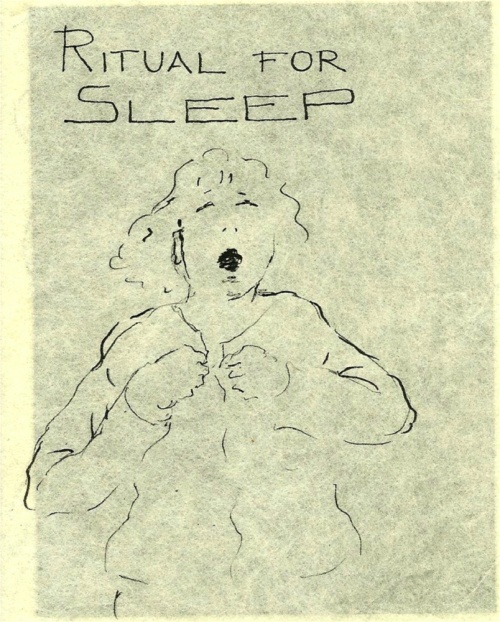 RITUAL FOR
SLEEP